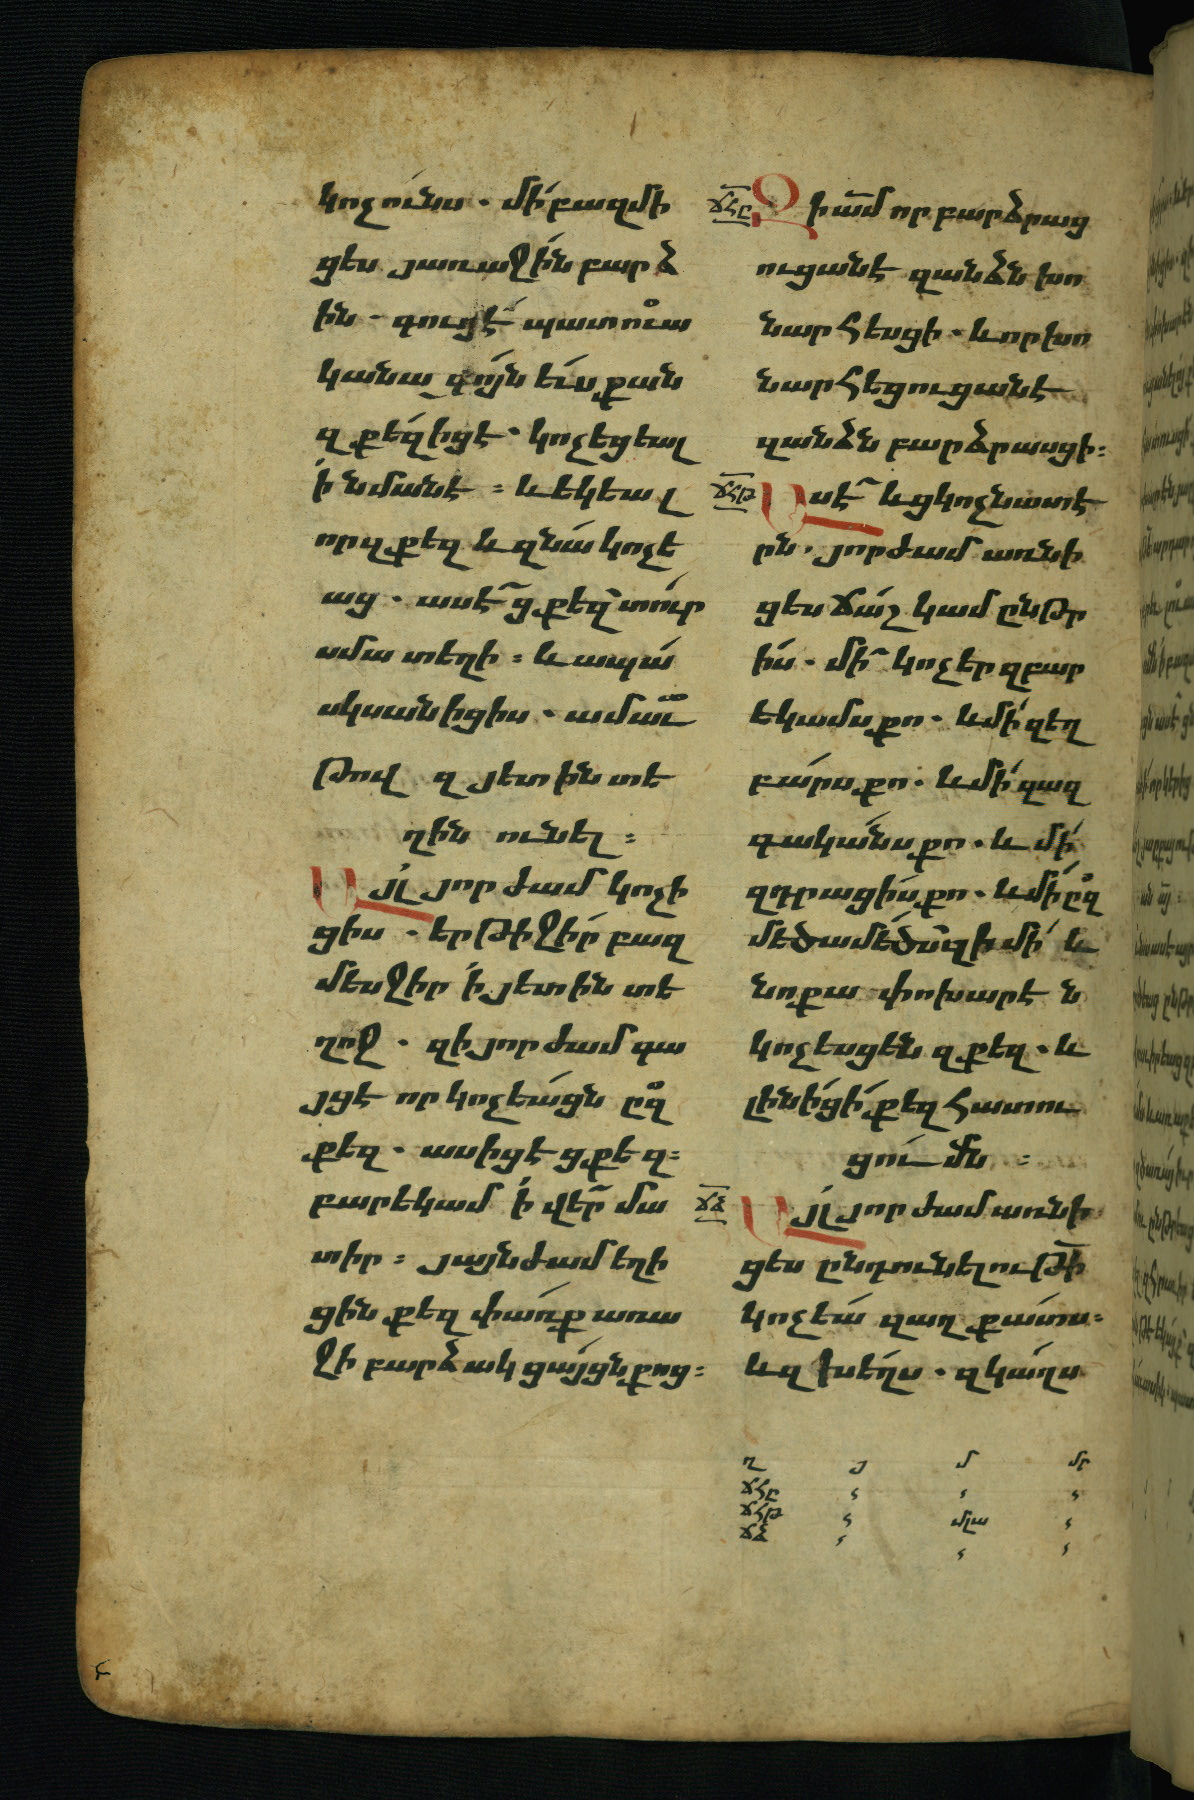 կոչունս . մի բազմի
ցես յառաջին բարձ
ին . գուցէ պատուա
կանագոյն եւս քան
զքեզ իցէ . կոչեցեալ
ի նմանէ : և եկեալ
որ զքեզ և զնա կոչե
աց . ասէ ցքեզ տուր
սմա տեղի : և ապա
սկսանիցիս . ամաւ
թով զյետին տե
ղին ունել :
Այլ յորժամ կոչի
ցիս . երթիջիր բազ
մեսջիր ի յետին տե
ղոջ . զի յորժամ գա
յցէ որ կոչեացն ըզ
քեզ . ասիցէ ցքեզ :
բարեկամ ի վեր մա
տիր : յայնժամ եղի
ցին քեզ փառք առա
ջի բարձակցայցն քոց :
ՃՀԸ Զի ամ որ բարձրաց
ուցանէ զանձն խո
նարհեսցի . և որ խո
նարհեցուցանէ
զանձն բարձրասցի :
ՃՀԹ Ասէ և ցկոչնատէ
րն . յորժամ առնի
ցես ճաշ կամ ընթր
իս . մի կոչեր զբար
եկամս քո . և մի զեղ
բարս քո . և մի զազ
գականս քո . և մի
զդրացիս քո . և մի ըզ
մեծամեծս զի մի և
նոքա փոխարէն
կոչեսցեն զքեզ . և
լինիցի քեզ հատու
ցումն :
ՃՁ Այլ յորժամ առնի
ցես ընդունելութի
կոչեա զաղքատս :
և զխեղս . զկաղս
ղ յ մ մր
ՃՀԸ
ՃՀԹ մլա
ՃՁ